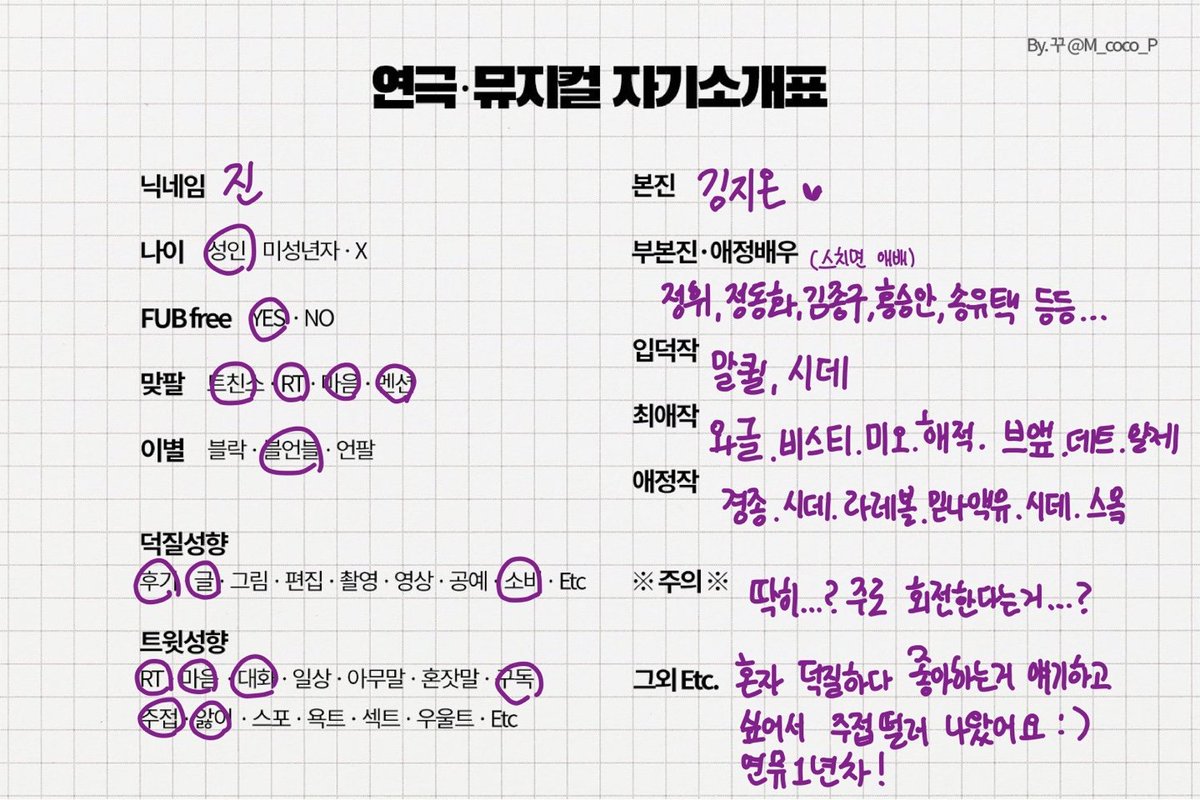 By. 꾸 @M_coco_P
연극·뮤지컬 자기소개표
닉네임 진
나이 성인 · 미성년자 · X
FUB free YES · NO
맞팔 트친소 · RT · 마음 · 멘션
이별 블락 · 블언블 · 언팔
덕질성향
후기 · 글 · 그림 · 편집 · 촬영 · 영상 · 공예 · 소비 · Etc
트윗성향
RT · 마음 · 대화 · 일상 · 아무말 · 혼잣말 · 구독
주접 · 앓이 · 스포 · 욕트 · 섹트 · 우울트 · Etc
본진 김지온 ♥
부본진·애정배우 (스치면 애배)
정휘, 정동화, 김종구, 홍승안, 송유택 등등...
입덕작 말퀼, 시데
최애작 와글. 비스티. 미오. 해적. 브앺. 데트. 알제
애정작 경종. 시데. 라레볼. 믿나액유. 시데. 스옥
※ 주의 ※ 딱히...? 주로 회전한다는거...?
그외 Etc. 혼자 덕질하다 좋아하는거 얘기하고
싶어서 주접떨러 나왔어요 :)
연뮤 1년차!